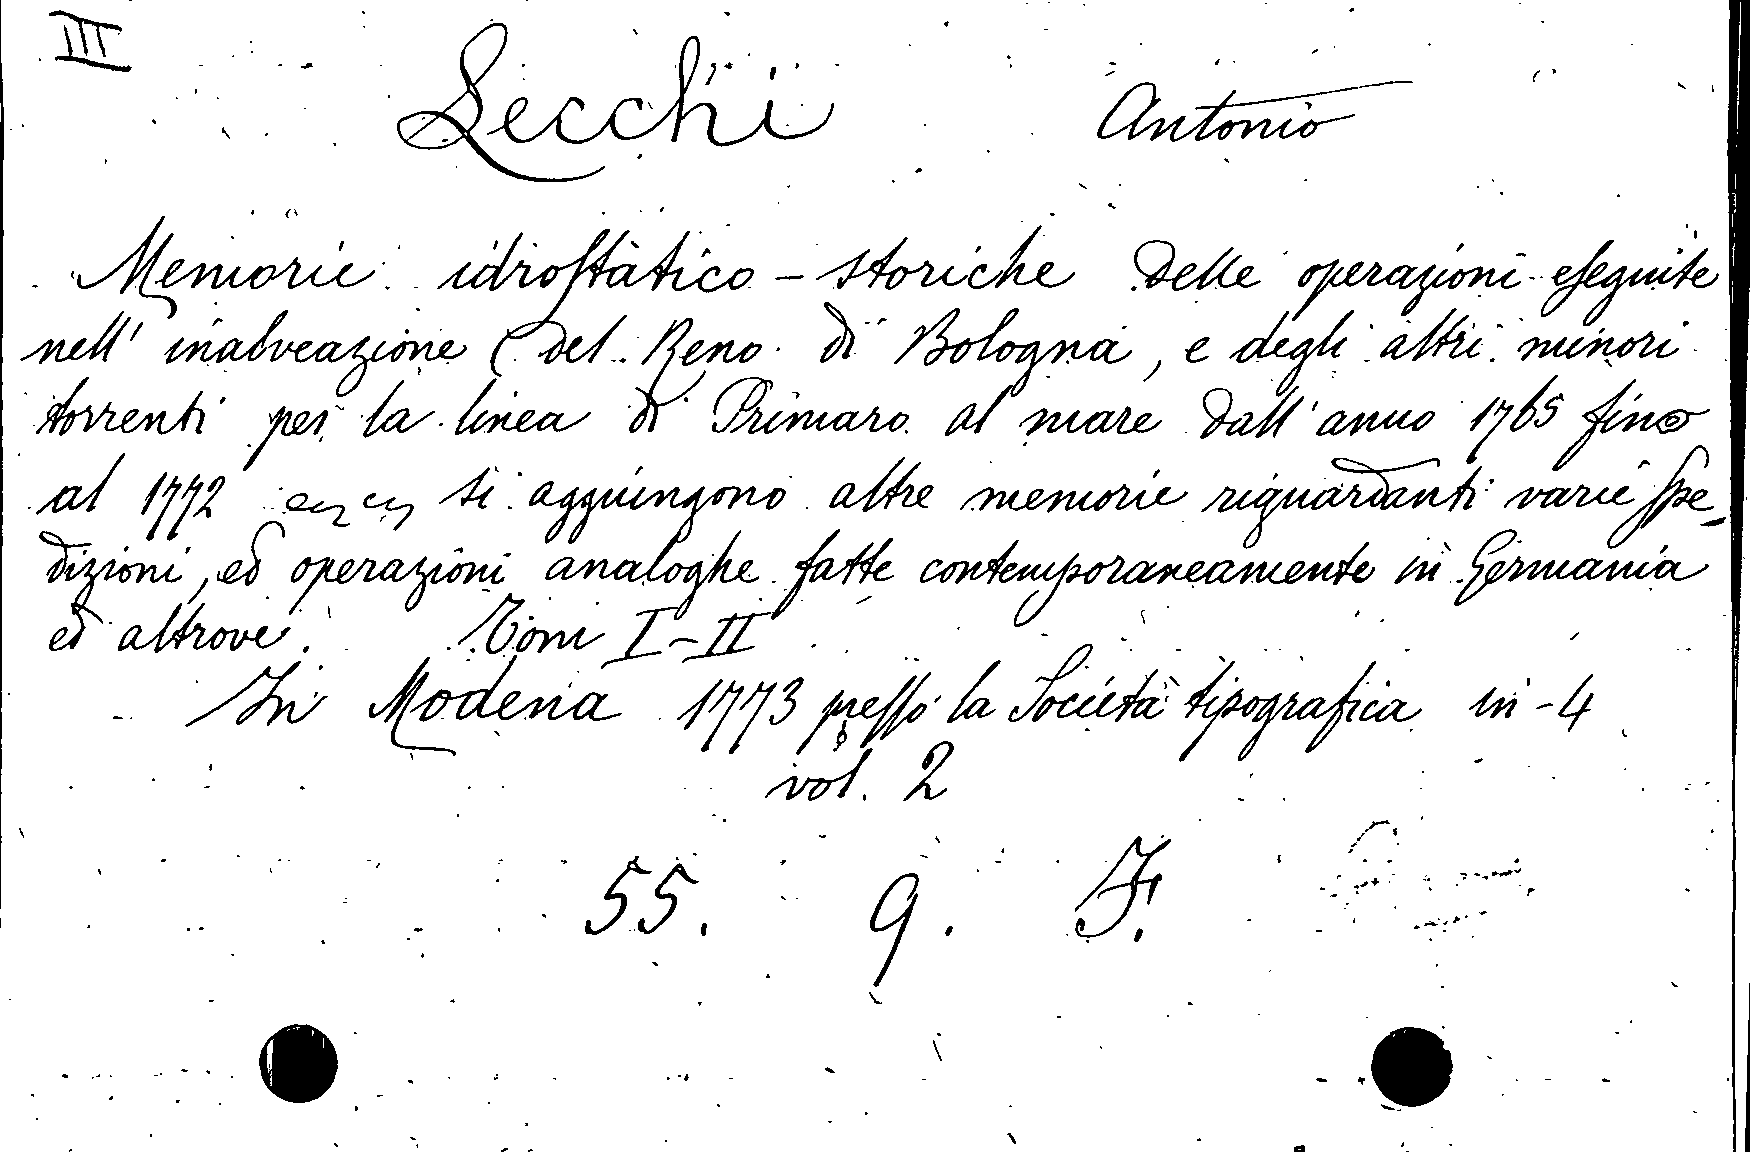 III
Lecchi Antonio
Memorie idrostatico-storiche delle operazioni eseguite
nell' inalveazione del Reno di Bologna, e degli altri minori
torrenti per la linea di Primaro al mare dall' anno 1765 fino
al 1772 si aggiungono altre memorie riguardanti varie spe-
dizioni, ed operazioni analoghe fatte contemporaneamente in Germania
ed altrove. Tomi I-II
In Modena 1773 presso la Società tipografica in-4
vol. 2
55. 9. F.